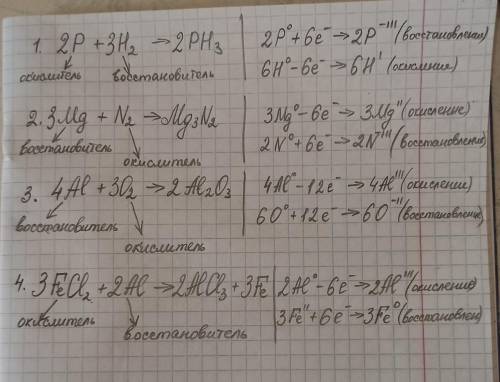 1. 2P + 3H₂ → 2PH₃
окислитель восстановитель
2P⁰ + 6e⁻ → 2P⁻ᴵᴵᴵ (восстановления)
6H⁰ - 6e⁻ → 6Hᴵ (окисления)
2. 3Mg + N₂ → Mg₃N₂
восстановитель
окислитель
3Mg⁰ - 6e⁻ → 3Mgᴵᴵ (окисление)
2N⁰ + 6e⁻ → 2N⁻ᴵᴵᴵ (восстановления)
3. 4Al + 3O₂ → 2Al₂O₃
восстановитель
окислитель
4Al⁰ - 12e⁻ → 4Alᴵᴵᴵ (окислении)
6O⁰ + 12e⁻ → 6O⁻ᴵᴵ (восстановление)
4. 3FeCl₂ + 2Al → 2AlCl₃ + 3Fe
окислитель
восстановитель
2Al⁰ - 6e⁻ → 2Alᴵᴵᴵ (окисление)
3Feᴵᴵ + 6e⁻ → 3Fe⁰ (восстановлен)